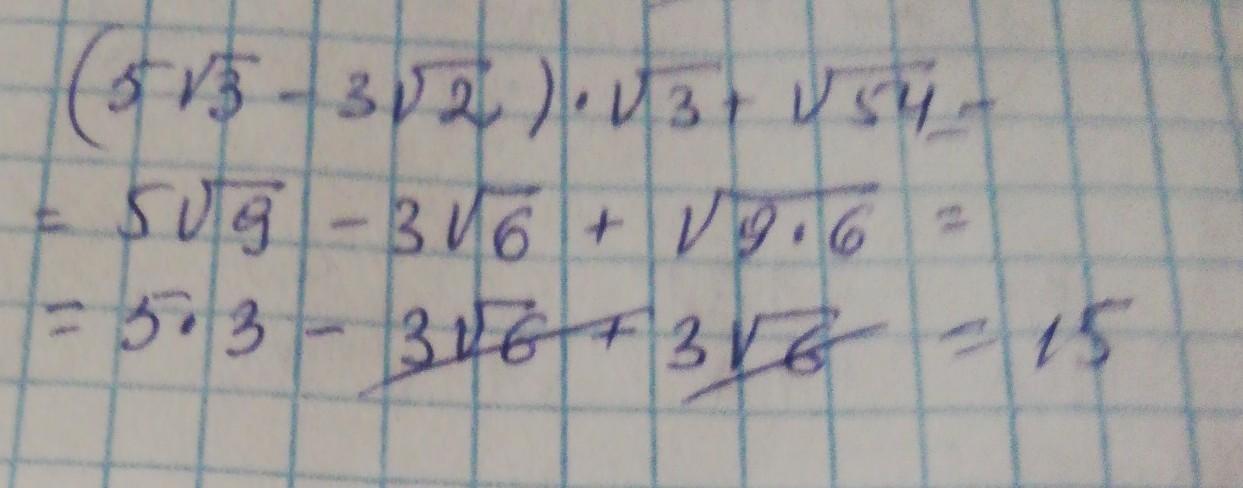 (5√3 - 3√2) · √3 + √54 =
= 5√9 - 3√6 + √9·6 =
= 5·3 - 3√6 + 3√6 = 15